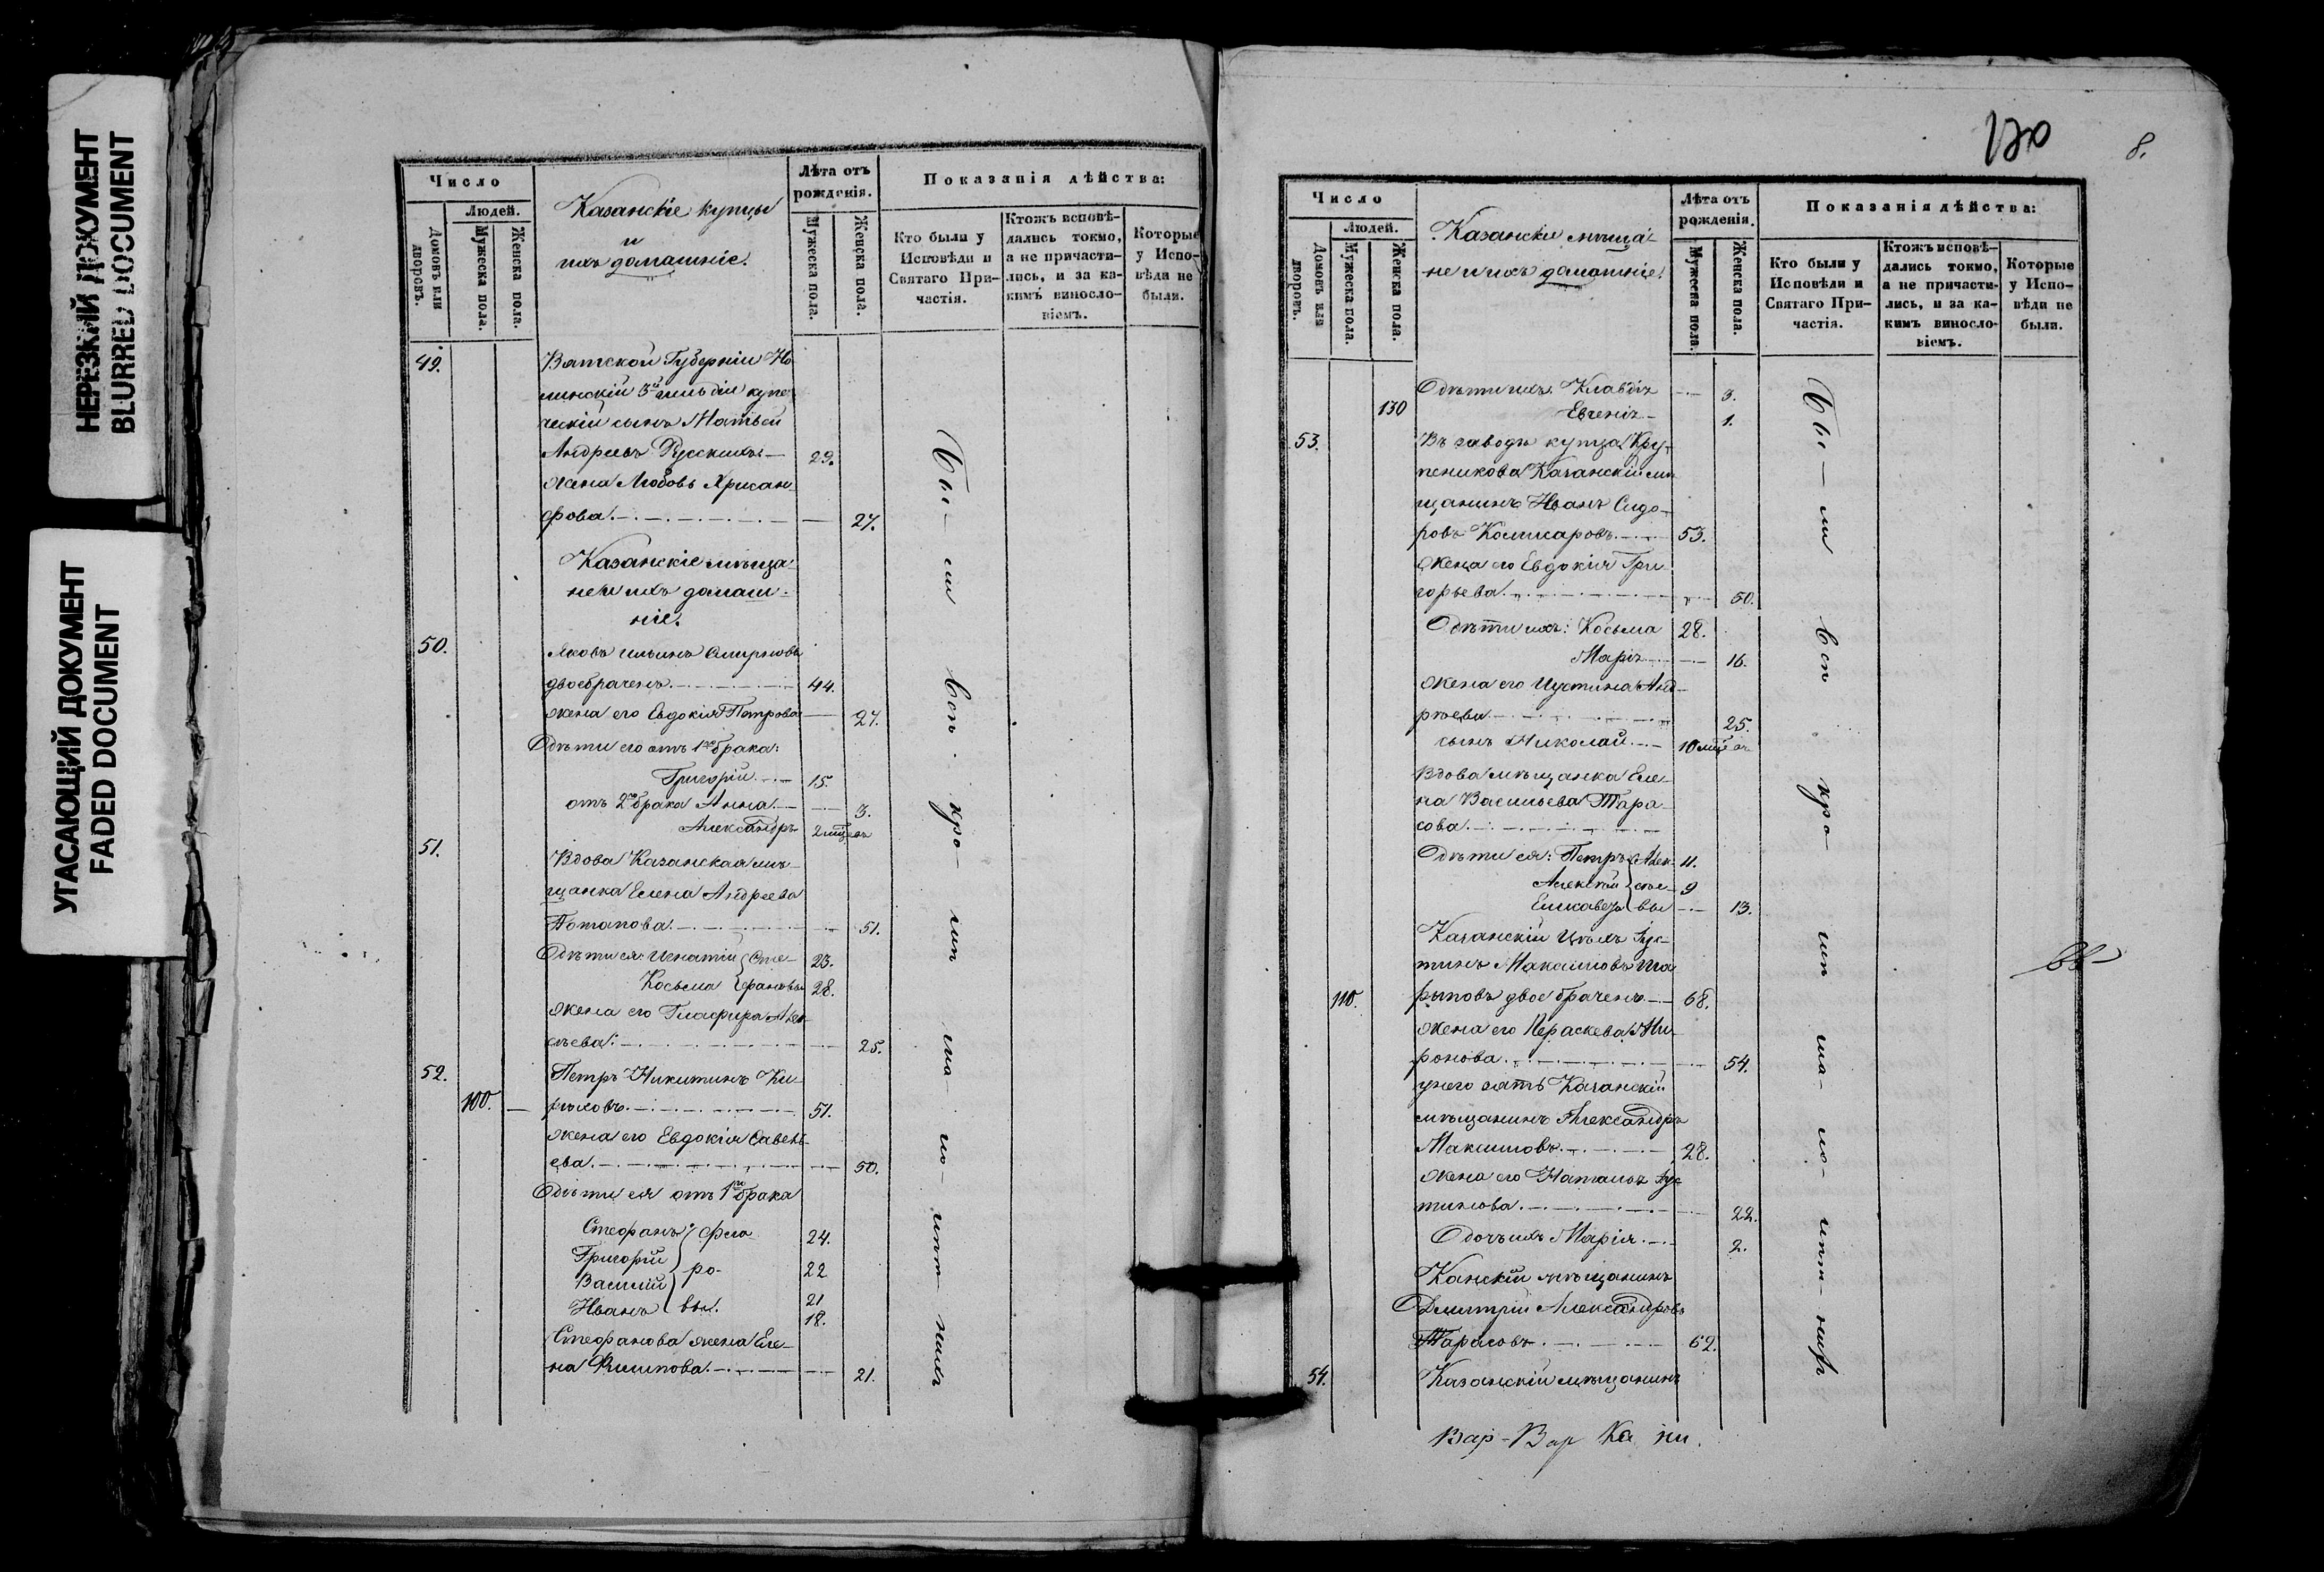 НЕРЕЗКИЙ ДОКУМЕНТ
BLURRED DOCUMENT
УГАСАЮЩИЙ ДОКУМЕНТ
FADED DOCUMENT
Число
Людей.
Домовъ или дворовъ.
Мужеска пола.
Женска пола.
Казанскіе купцы
и
ихъ домашніе.
Лѣта отъ рожденія.
Мужеска пола.
Женска пола.
Показанія дѣйства:
Кто были у Исповѣди и Святаго При-частія.
Ктожъ исповѣ-дались токмо, а не причасти-лись, и за ка-кимъ винословіемъ.
Которые у Испо-вѣди не были.
49. Вятской Губерніи Но
линскій 3й гильдіи купе
ческій сынъ Матвѣй
Андреевъ Русскихъ 29.
жена Любовь Хрисан
фова. 27.
Казанскіе мѣща-
не и ихъ домаш-
ніе.
50. Яковъ Ильинъ Смирновъ
двоебраченъ. 44.
жена его Евдокія Петрова 27.
Дѣти его отъ 1го брака:
Григорій 15.
отъ 2го брака Анна. 3.
Александръ 2 мцевъ
51. Вдова Казанская мѣ-
щанка Елена Андреева
Потапова. 51.
Дѣти ея: Игнатій Сте- 23.
Косьма фановы 28.
жена его Глафира Алек-
сѣева. 25.
52. Петръ Никитинъ Ки-
100. риловъ. 51.
жена его Евдокія Савель-
ева. 50.
Дѣти ея отъ 1го брака
Стефанъ Фео- 24.
Григорій 22
Василій до- 21
Иванъ вы. 18.
Стефанова жена Еле-
на Филипова. 21.
Бы-ли всѣ кро-мѣ ма-ло-лѣт-нихъ
130
8.
Число
Людей.
Домовъ или дворовъ.
Мужеска пола.
Женска пола.
Казанскіе мѣща-
не и ихъ домашніе.
Лѣта отъ рожденія.
Мужеска пола.
Женска пола.
Показанія дѣйства:
Кто были у Исповѣди и Святаго При-частія.
Ктожъ исповѣ-дались токмо, а не причасти-лись, и за ка-кимъ винословіемъ.
Которые у Испо-вѣди не были.
Дѣти ихъ: Клавдія 3.
130 Евгенія 1.
53. Въ заводѣ купца Кру-
пеникова Казанскій мѣ
щанинъ Иванъ Сидо-
ровъ Комисаровъ 53.
Жена его Евдокія Гри-
горьева. 50.
Дѣти ихъ: Косьма 28.
Марія 16.
Жена его Иустина Анд-
рѣева 25.
сынъ Николай 10 мцевъ
Вдова мѣщанка Еле-
на Васильева Тара-
сова.
Дѣти ея: Петръ Алек- 11.
Алексѣй сѣе- 9
Елисавета вы 13.
Казанскій Цѣхъ Іус-
тинъ Максимовъ Ша
110. рыповъ двоебраченъ 68.
Жена его Параскева Ми-
ронова. 54.
у него зять Казанскій
мѣщанинъ Александръ
Максимовъ 28.
Жена его Наталья Іус
тинова. 22.
Дочь ихъ Марія 2.
Канскій мѣщанинъ
Дмитрій Александровъ
Тарасовъ 62.
54. Казанскій мѣщанинъ
Бы-ли всѣ кро-мѣ ма-ло-лѣт-нихъ
Вар-Вар